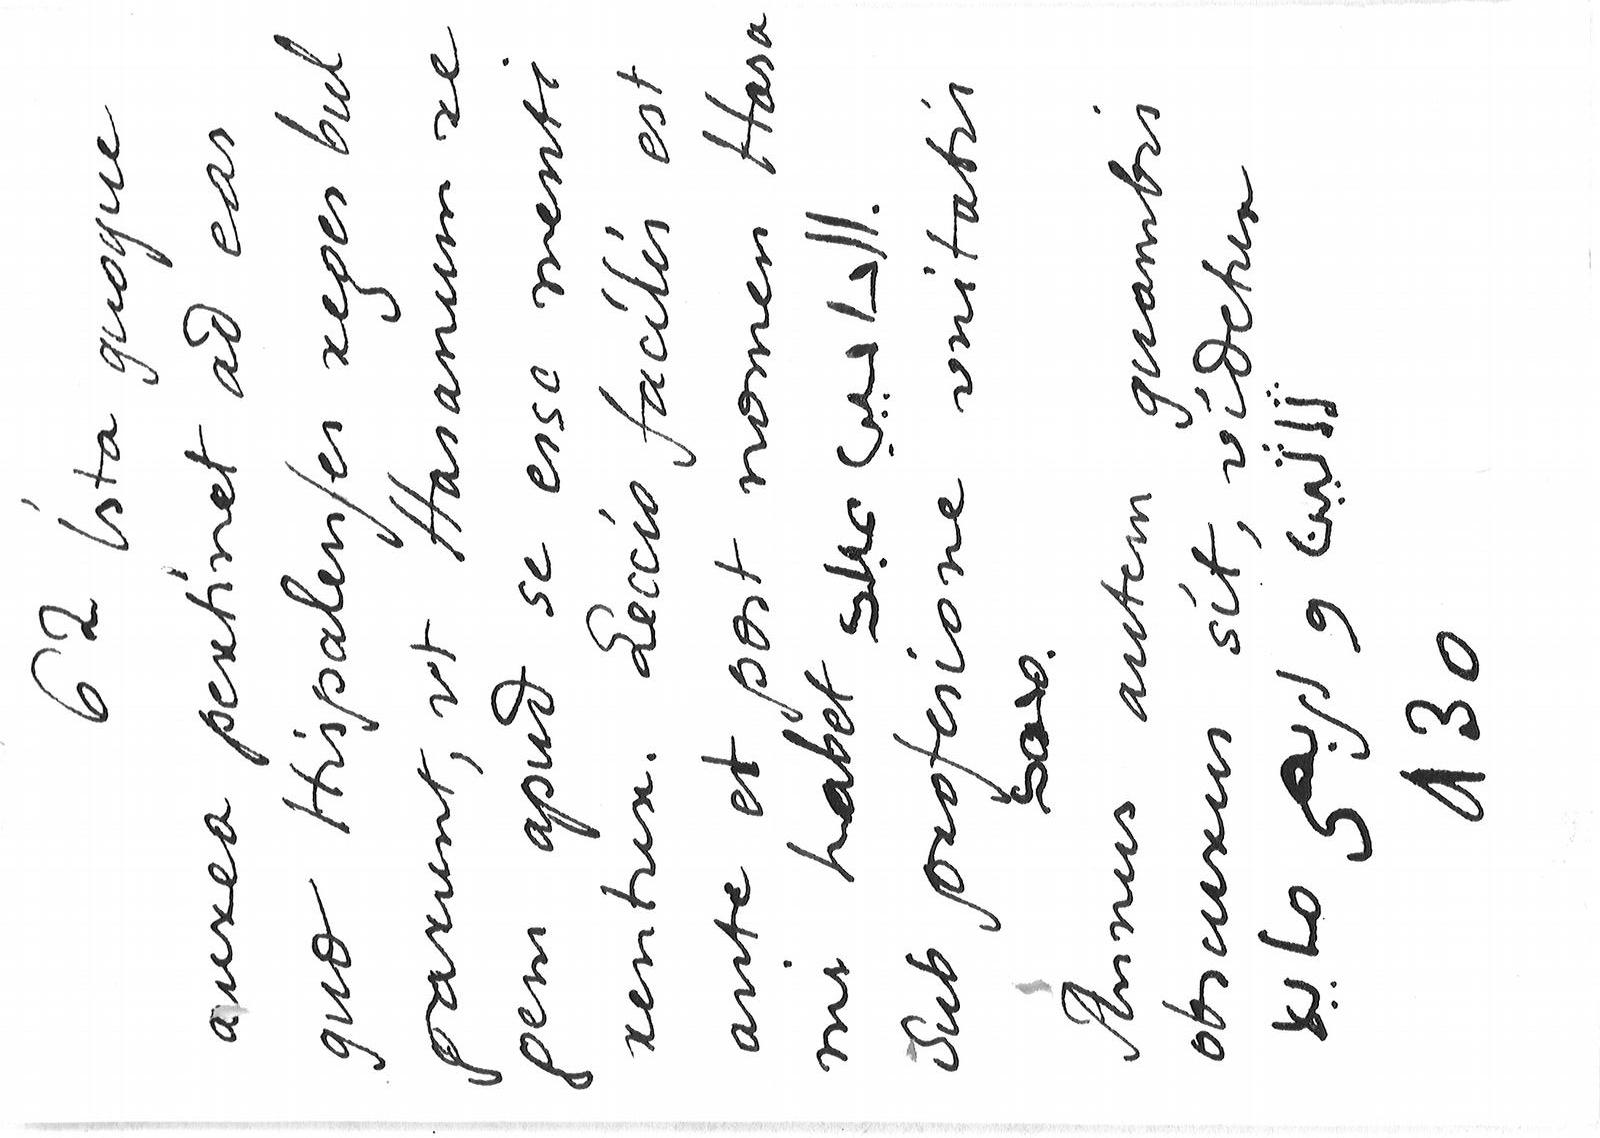 62 ista quoque
aurea pertinet ad eas
quod Hispalenses reges bul
garunt, vt Hasanum re
gem apud se esse menti
rentur. Leccio facilis est
ante et post nomen Hasa
ni habet عبد
Sub profesione vnitatis
Annus autem quamvis
obscurus sit, videtur
ثلثين و اربع مايه
430